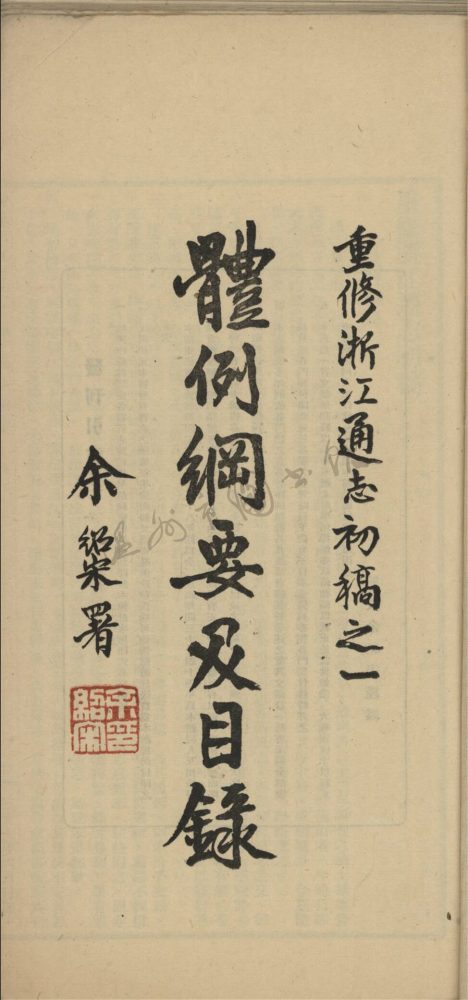 重修浙江通志初稿之一
體例綱要及目錄
余紹宋署
余紹宋印